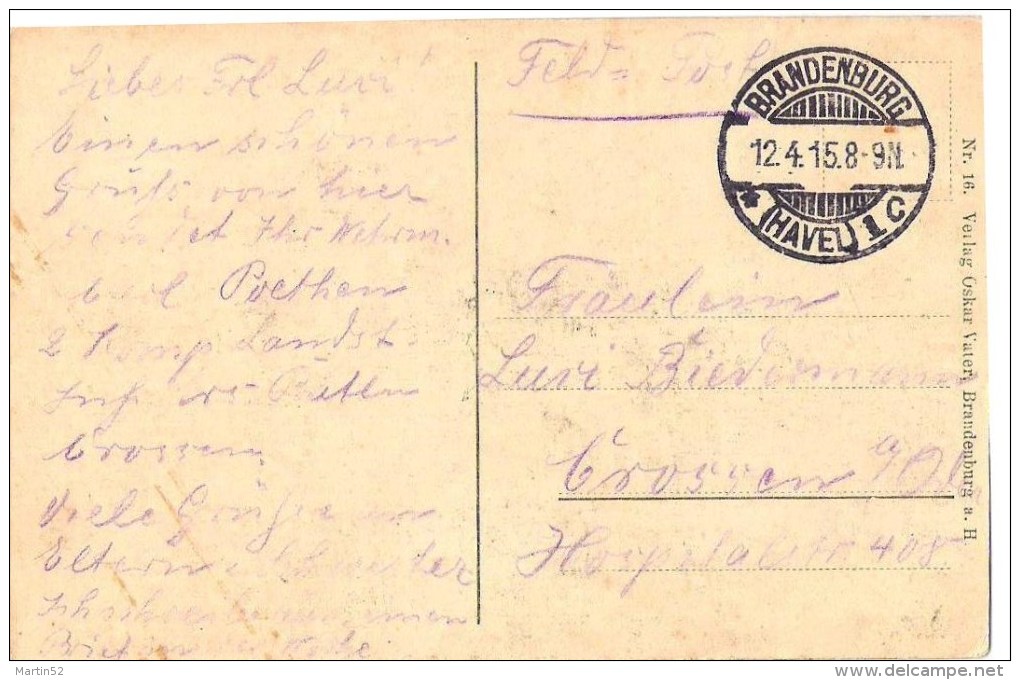 Liebes Frl Luzi!
Einen schönen
Gruß von hier
sendet Ihr Wehrm.
Poethen
2 Komp Landst
Crossen
Viele Grüße an
Eltern
einen
Brief
Feld= Post
BRANDENBURG
12.4.15.8-9N.
* (HAVEL) 1 C
Fräulein
Luzi Biedermann
Crossen a/Od.
Hospitalstr 408
Nr. 16. Verlag Oskar Vater, Brandenburg a. H.
Martin52
delcampe.net